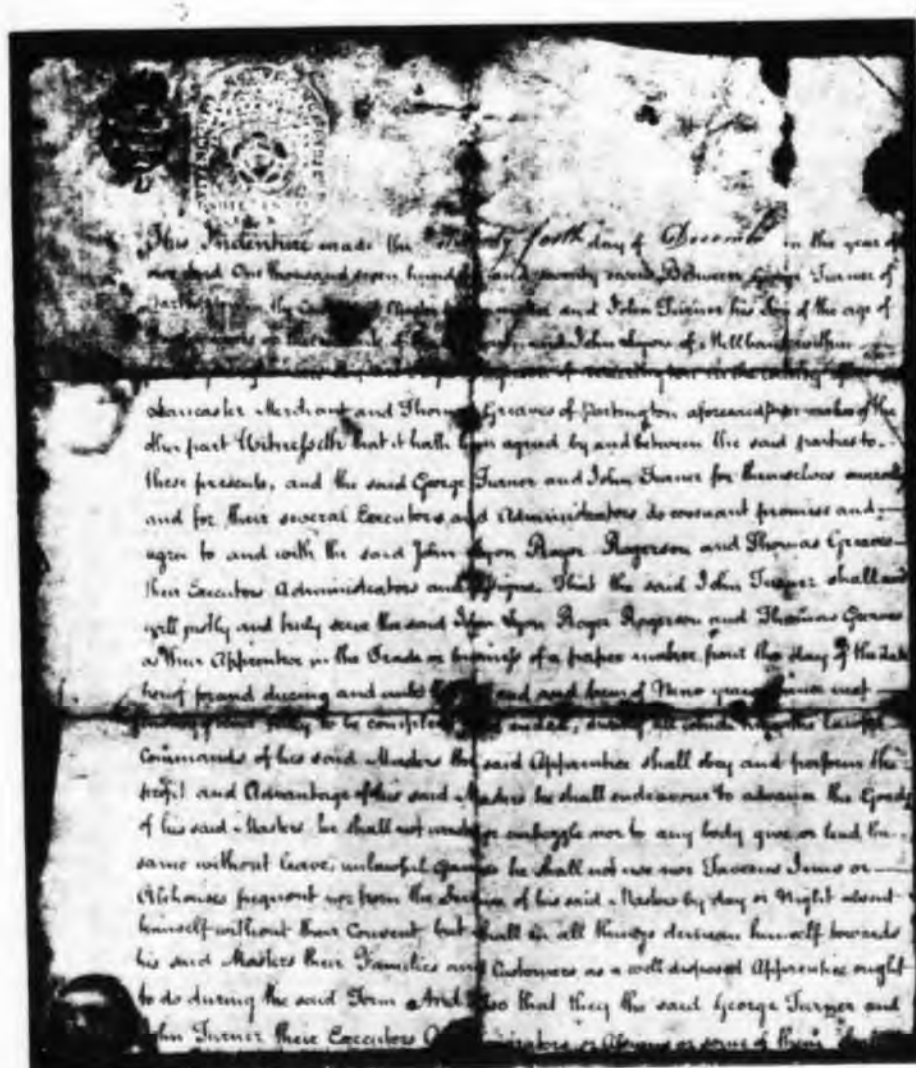 This Indenture made the day of December in the year of
our Lord One thousand seven hundred and seventy seven Between George Turner of
in the and John Turner his Son of the age of
and John Lyon of within
in the County of
Lancaster Merchant and Thomas Greaves of Partington aforesaid paper maker of the
other part Witnesseth that it hath been agreed by and between the said parties to
these presents, and the said George Turner and John Turner for themselves
and for their several Executors and Administrators do covenant promise and
agree to and with the said John Lyon Roger Rogerson and Thomas Greaves
their Executors Administrators and Assigns That the said John Turner shall and
will justly and truly serve the said John Lyon Roger Rogerson and Thomas Greaves
as their Apprentice in the Trade or business of a paper maker from the day of the date
hereof for and during and until the end and term of Nine years
to be ended, during all which the lawful
Commands of his said Masters the said Apprentice shall obey and perform the
profit and Advantage of his said Masters he shall endeavour to advance the Goods
of his said Masters he shall not or embezzle nor to any body give or lend the
same without leave, unlawful Games he shall not use nor Taverns Inns or
Alehouses frequent nor from the Service of his said Masters by day or Night absent
himself without their Consent but shall in all things demean himself towards
his said Masters their Families and Customers as a well disposed Apprentice ought
to do during the said Term And also that they the said George Turner and
John Turner their Executors Administrators or Assigns or some of them